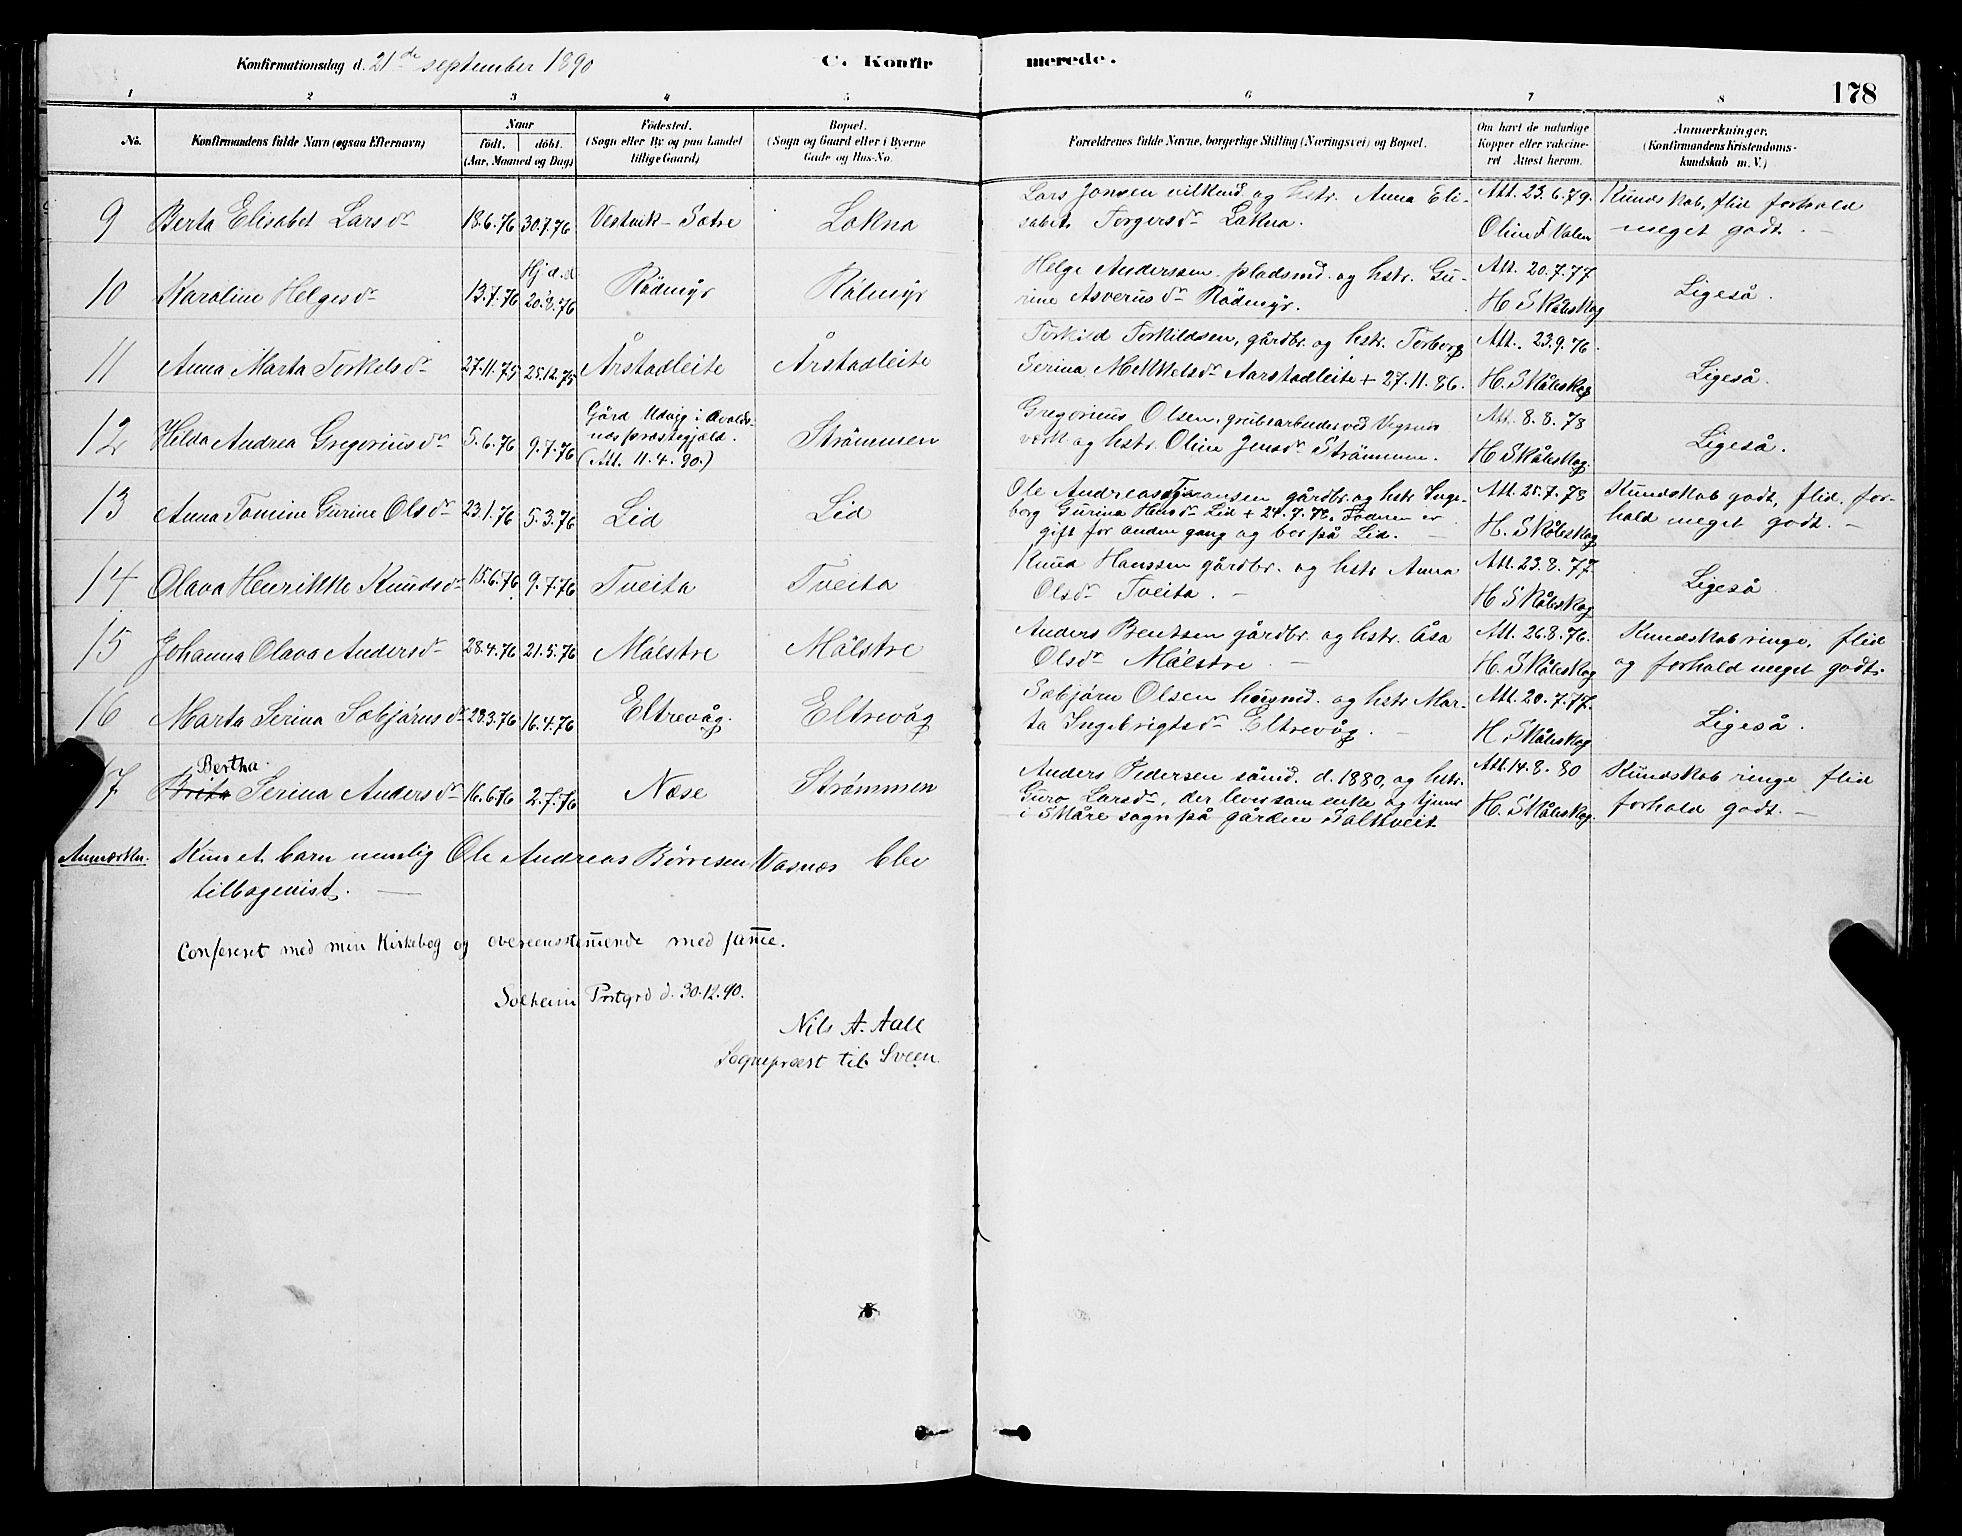 Konfirmationsdag d. 21de september 1890
C. Konfirmerede.
178
1 2 3 4 5 6 7 8
No.
Konfirmandens fulde Navn (ogsaa Efternavn)
Naar
født. døbt.
(Aar, Maaned og Dag)
Fødested.
(Sogn eller By og paa Landet
tillige Gaard)
Bopæl.
(Sogn og Gaard eller i Byerne
Gade og Hus-No.
Forældrenes fulde Navne, borgerlige Stilling (Næringsvei) og Bopæl.
Om havt de naturlige
Kopper eller vakcine-
ret Attest herom.
Anmærkninger.
(Konfirmandens Kristendoms-
kundskab m. V.)
9 Berta Elisabet Larsdr 18.6.76 30.7.76 Vestvik - Sætre Lokna
Lars Jonsen vilkmd. og hstr. Anna Eli-
sabet Torgersdr Lakna.
Att. 23.6.79.
Oline F Valen
Kundskab, flid forhold
meget godt. —
10 Karoline Helgesdr 13.7.76 Hj. d. d 20.8.76 Rödmyr Rödmyr
Helge Anderssen pladsmd. og hstr. Gu-
rine Asverusdr Rödmyr.
Att. 20.7.77
H Skåleskog
Ligeså.
11 Anna Marta Torkelsdr 27.11.75 25.12.75 Årstadleite Årstadleite
Torkild Torkildsen, gårdbr. og hstr. Torborg
Serina Mikkelsdr Aarstadleite + 27.11.86.
Att. 23.9.76.
H. Skåleskog
Ligeså.
12 Hilda Andrea Gregoriusdr 5.6.76 9.7.76
Gård Udvig i Avalds-
næs præstegjæld.
(Att. 11.4.90.)
Strömmen
Gregorius Olsen, grubearbeider ved Vigsnes
værk og hstr. Oline Jensdr Strömmen.
Att. 8.8.78
H Skåleskog.
Ligeså.
13 Anna Tomine Gurine Olsdr 23.1.76 5.3.76 Lid Lid
Ole Andreas Tjransen gårdbr. og hstr Inge-
borg Gurina Hansdr Lid + 24.7.78. Faderen er
gift for anden gang og bor på Lid. —
Att. 25.7.78
H. Skåleskog
Kundskab godt, flid, for-
hold meget godt. —
14 Olava Henrikke Knudsdr 15.6.76 9.7.76 Tveita Tveita
Knud Hanssen gårdbr. og hstr Anna
Olsdr Tveita. —
Att. 23.8.77.
H Skåleskog
Ligeså
15 Johanna Olava Andersdr 28.4.76 21.5.76 Målstre Målstre
Anders Bentsen gårdbr. og hstr. Åsa
Olsdr Målstre. —
Att. 26.8.76.
H. Skåleskog
Kundskab ringe, flid
og forhold meget godt.
16 Marta Serina Sæbjörnsdr 28.3.76 16.4.76 Eltrevåg. Eltrevåg
Sæbjörn Olsen husmd. og hstr Mar-
ta Ingebrigtsdr Eltrevåg. —
Att. 20.7.77.
H Skåleskog
Ligeså.
Bertha.
17 Brita Serina Andersdr 16.6.76 2.7.76 Næse Strømmen
Anders Pedersen sömd. d. 1880, og hstr.
Guro Larsdr, der lever som enke og tjener
i Skåre sogn på gården Saltveit
Att. 14.8.80
H. Skåleskog.
Kundskab ringe, flid
forhold godt. —
Anmærkn. Kun et barn nemlig Ole Andreas Börresen Vasnæs blev
tilbagevist. —
Confereret med min Kirkebog og overeensstemmende med samme.
Solheim Prstgrd d. 30.12.90.
Nils A. Aall
Sognepræst til Sveen.